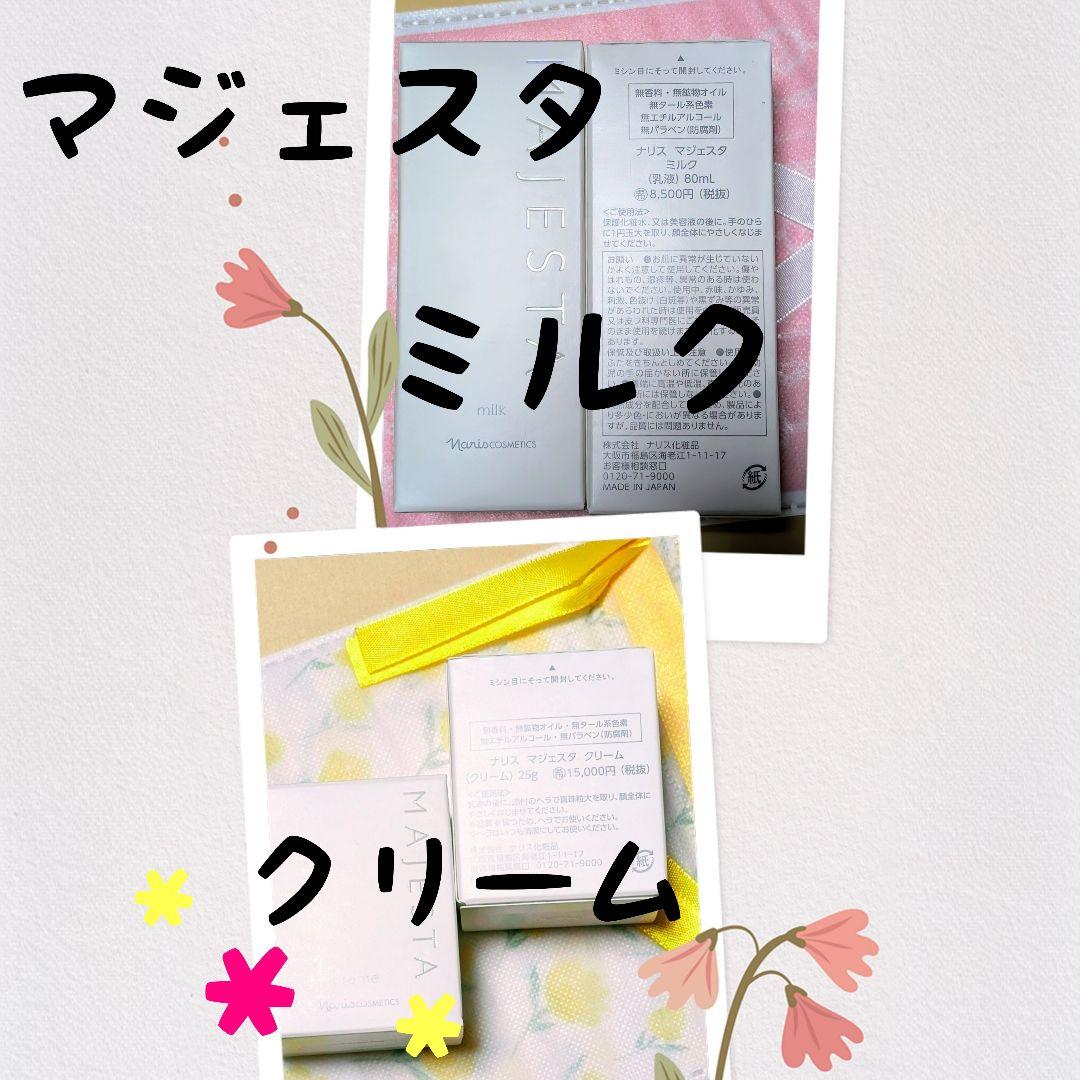 マジェスタ
ミルク
クリーム
MAJESTA
milk
naris COSMETICS
ミシン目にそって開封してください。
無香料・無鉱物オイル
無タール系色素
無エチルアルコール
無パラベン(防腐剤)
ナリス マジェスタ
ミルク
(乳液) 80mL
希8,500円 (税抜)
<ご使用法>
保護化粧水、又は美容液の後に、手のひら
に1円玉大を取り、顔全体にやさしくなじま
せてください。
お願い ●お肌に異常が生じていない
かよく注意して使用してください。傷や
はれもの、湿疹等、異常のある時は使わ
ないでください。使用中、赤味、かゆみ、
刺激、色抜け(白斑等)や黒ずみ等の異常
があらわれた時は使用を
又は皮フ科専門医にご
のまま使用を続けま
あります。
保管及び取扱い上
ふたをきちんとしめてください。
児の手の届かない所に保管し
には保管しな
成分を配合して
り多少色・においが異なる場合がありま
すが、品質には問題ありません。
株式会社 ナリス化粧品
大阪市福島区海老江1-11-17
お客様相談窓口
0120-71-9000
MADE IN JAPAN
紙
ミシン目にそって開封してください。
無香料・無鉱物オイル・無タール系色素
無エチルアルコール・無パラベン(防腐剤)
ナリス マジェスタ クリーム
(クリーム) 25g 希15,000円 (税抜)
<ご使用法>
乳液の後に、添付のヘラで真珠粒大を取り、顔全体に
やさしくなじませてください。
※品質を保つため、ヘラでお使いください。
※ヘラはいつも清潔にしてお使いください。
株式会社 ナリス化粧品
大阪市福島区海老江1-11-17
0120-71-9000
紙
MAJESTA
naris COSMETICS